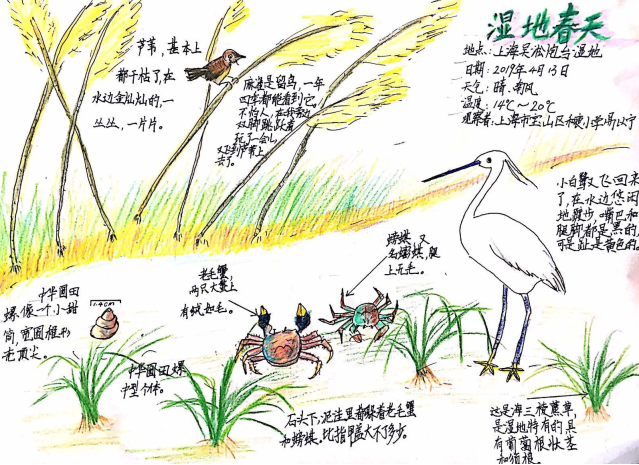 湿地春天
地点：上海吴淞炮台湿地
日期：2019年4月13日
天气：晴，南风
温度：14℃～20℃
观察者：上海市宝山区和衷小学
芦苇，基本上
都干枯了，在
水边金灿灿的，一
丛丛，一片片。
麻雀是留鸟，一年
四季都能看到它。
不怕人，在我旁边
双脚跳跃着
玩了一会儿，
又飞到芦苇上
去了。
小白鹭又飞回来
了，在水边悠闲
地散步，嘴巴和
腿脚都是黑的，
可是趾是黄色的。
螃蜞，又
名蟛蜞，腿
上无毛。
老毛蟹，
两只大螯上
有绒如毛。
中华圆田
螺像一个小甜
筒，宽圆锥形
老顶尖。
1.4cm
中华圆田螺
中型个体。
石头下，泥洼里都躲着老毛蟹
和螃蜞，比指甲盖大不了多少。
这是海三棱藨草，
是湿地特有的，具
有匍匐根状茎
和须根。